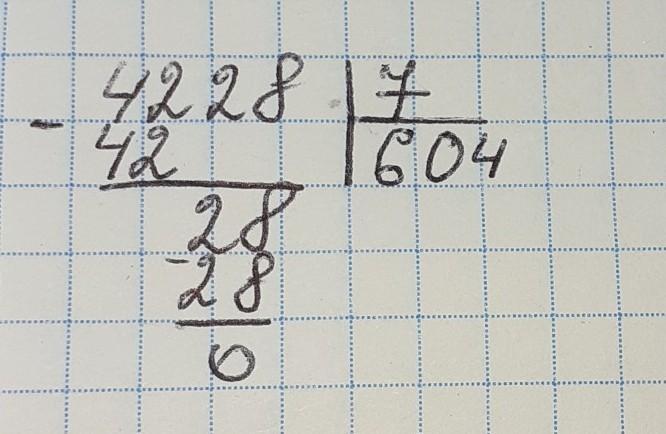 4228 | 7
- 42 | 604
28
- 28
0